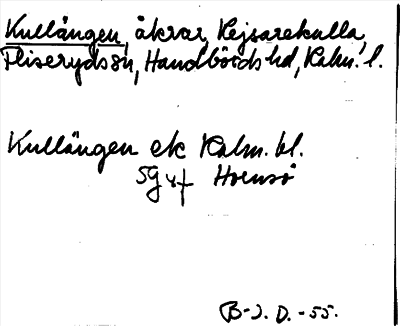 Kullängen, åkrar, Kejsarekulla,
Fliseryds sn, Handbörds hd, Kalm. l.
Kullängen ek Kalm. bl.
5G 4f Hornsö
B-J. D. -55.